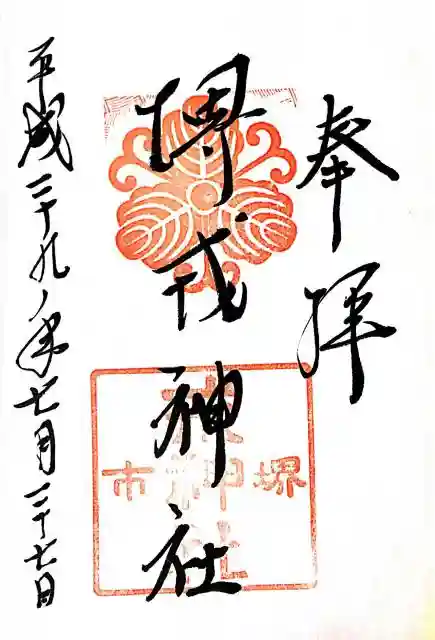 奉拝
堺戎神社
平成二十九年七月二十七日
堺市
戎神社